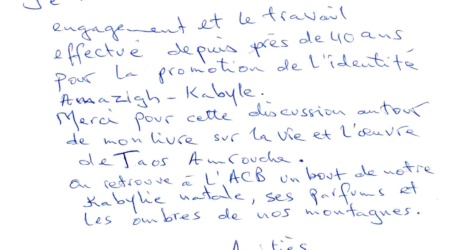 engagement et le travail
effectué depuis près de 40 ans
pour la promotion de l'identité
Amazigh-Kabyle.
Merci pour cette discussion autour
de mon livre sur la vie et l'œuvre
de Taos Amrouche.
On retrouve à l'ACB un bout de notre
Kabylie natale, ses parfums et
les ombres de nos montagnes.